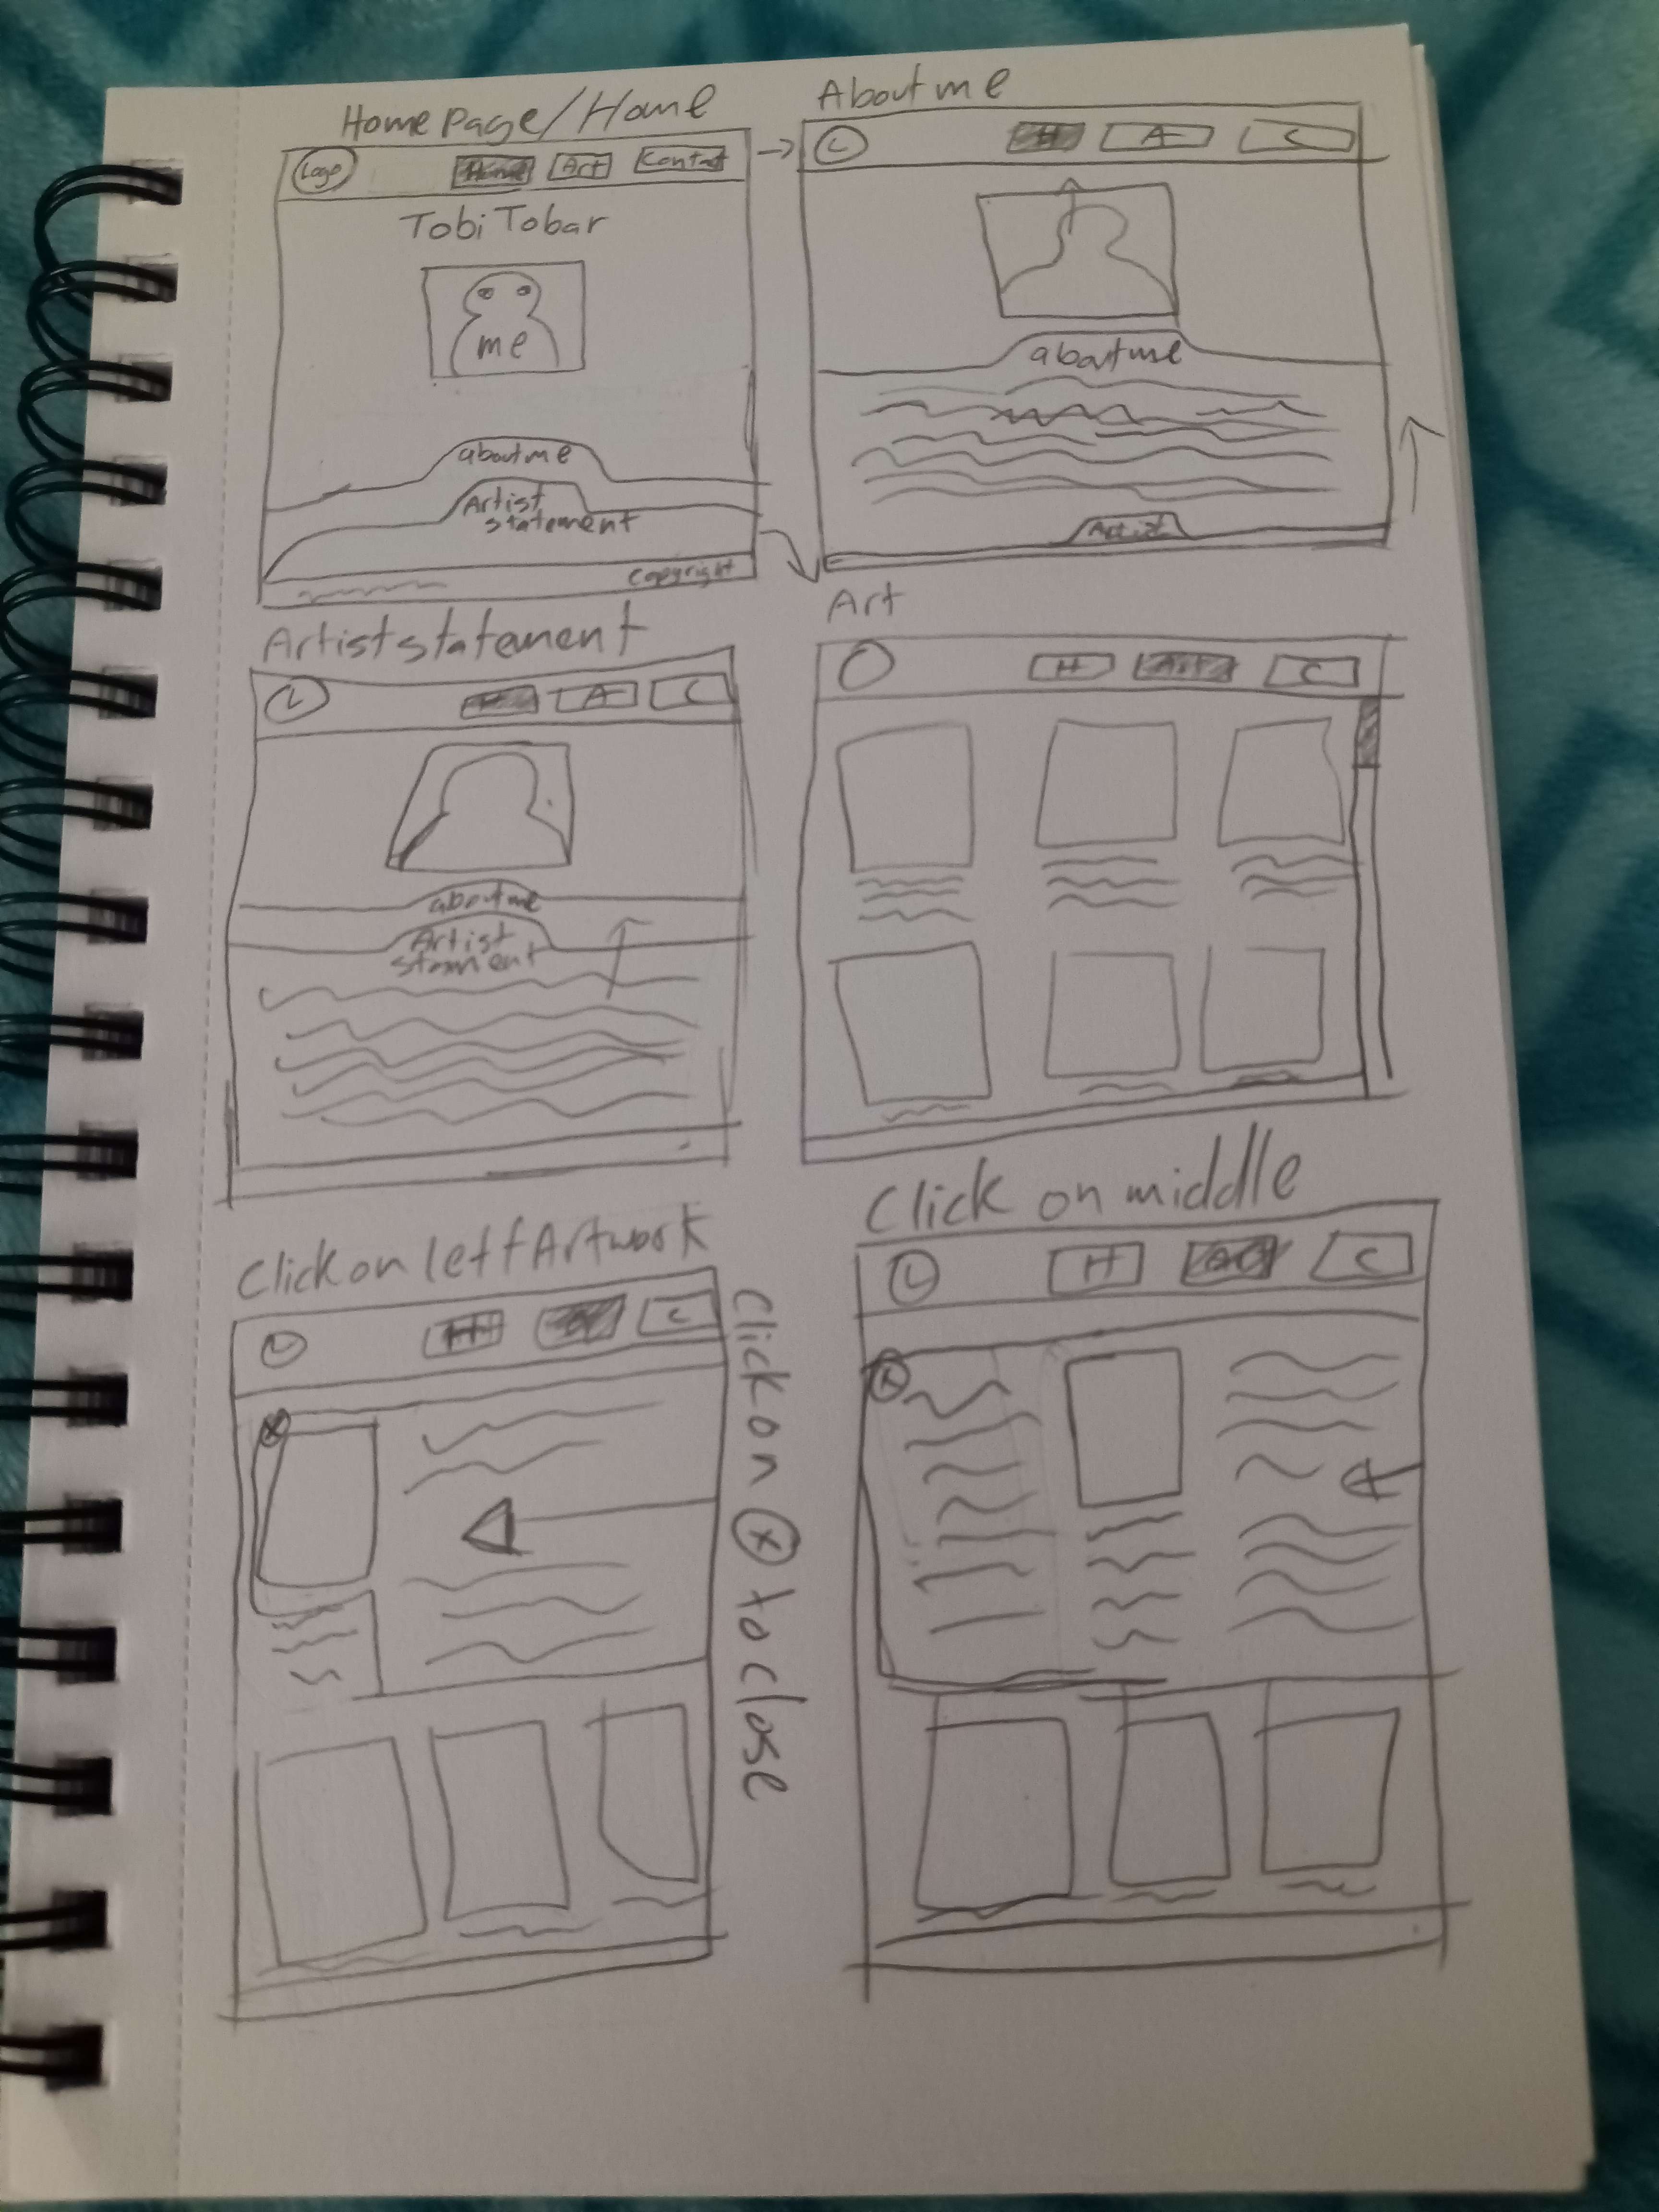 Home Page/Home
Logo
Home
Art
Contact
Tobi Tobar
me
about me
Artist
statement
copyright
About me
L
H
A
C
about me
Artist
Artist statement
L
H
A
C
about me
Artist
Art
H
Art
C
Click on left Artwork
L
H
C
X
Click on X to close
Click on middle
L
H
C